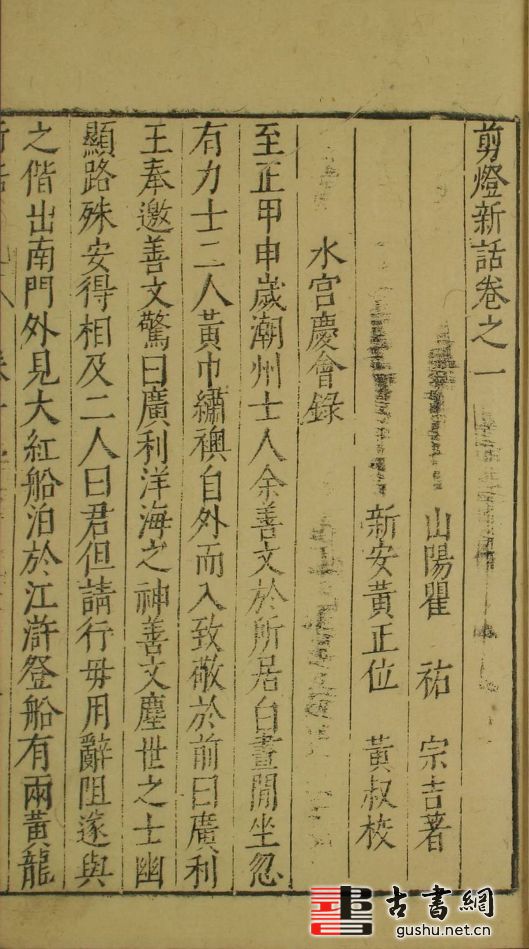 剪燈新話卷之一
山陽瞿　祐　宗吉著
新安黃正位　黃叔校
水宮慶會錄
至正甲申歲潮州士人余善文於所居白晝閒坐忽
有力士二人黃巾繡襖自外而入致敬於前曰廣利
王奉邀善文驚曰廣利洋海之神善文塵世之士幽
顯路殊安得相及二人曰君但請行毋用辭阻遂與
之偕出南門外見大紅船泊於江滸登船有兩黃龍
古書網
gushu.net.cn